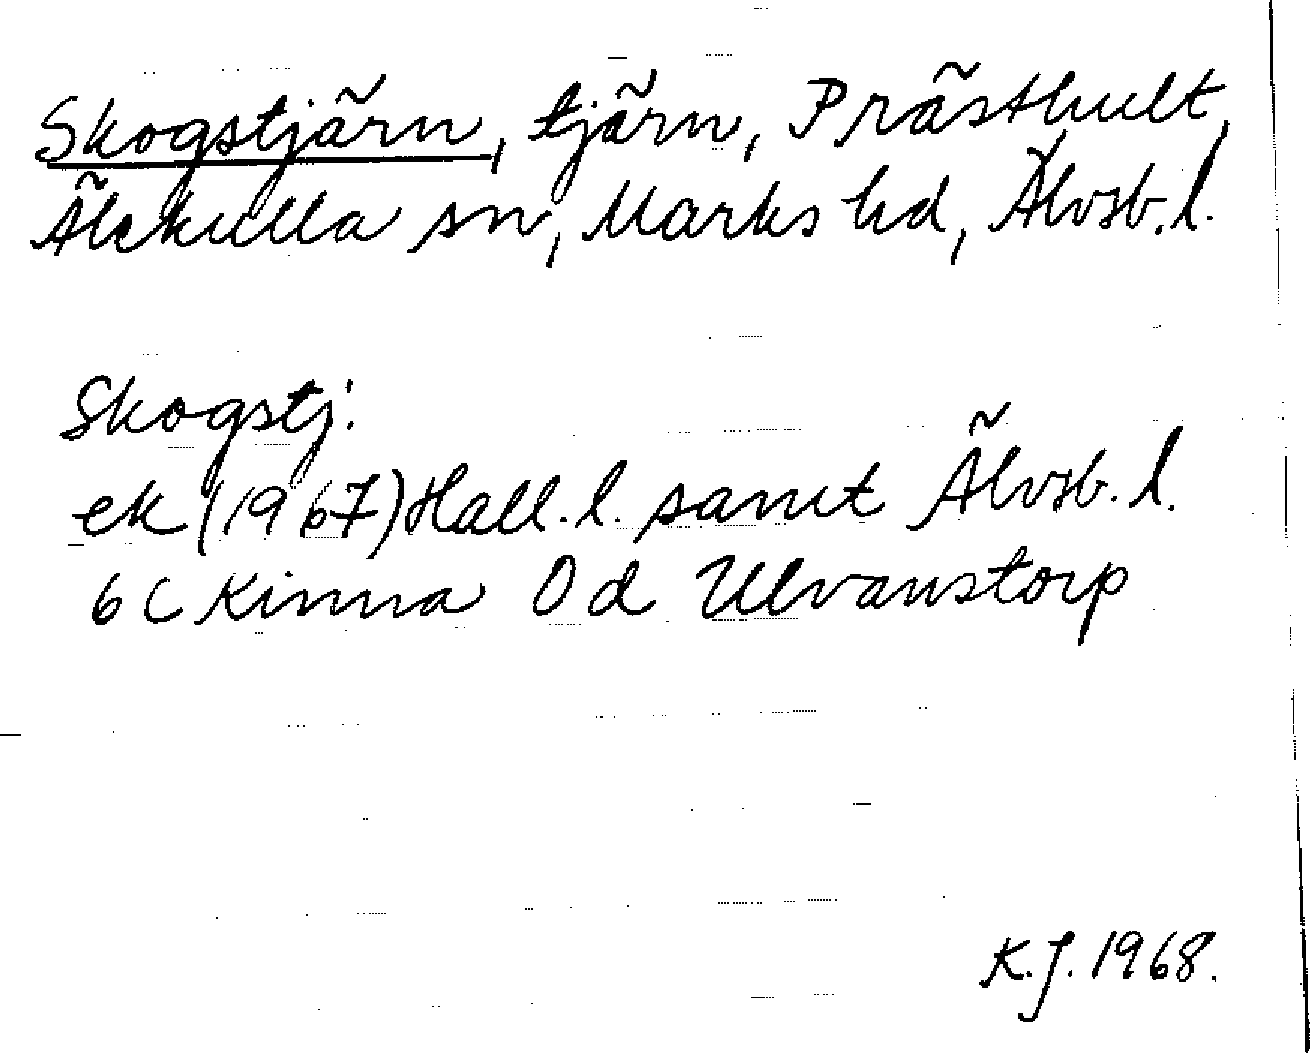 Skogstjärn, tjärn, Prästhult,
Älekulla sn, Marks hd, Älvsb. l.
Skogstj.
ek (1967) Hall. l. samt Älvsb. l.
6 C Kinna 0 d Ulvanstorp
K. J. 1968.